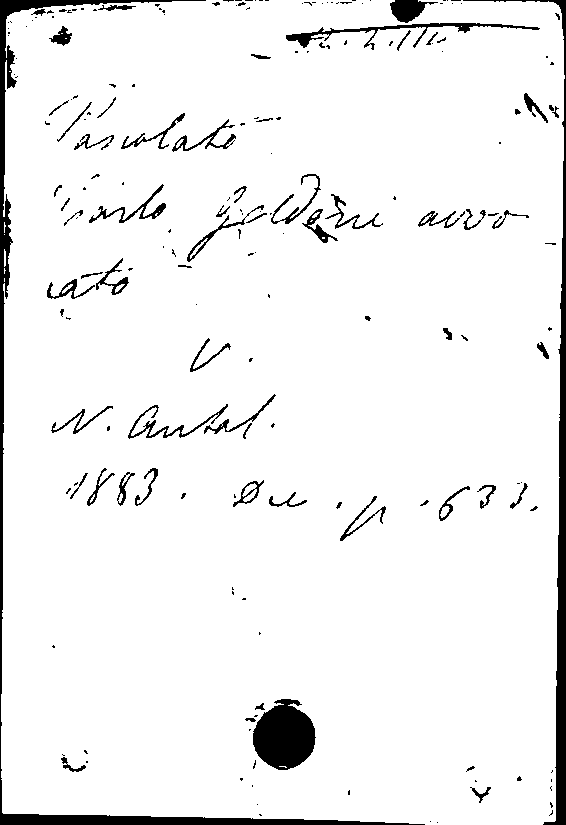 Pascolato
Carlo Goldoni avvo
cato
V.
N. Antol.
1883. Dic. p. 633.